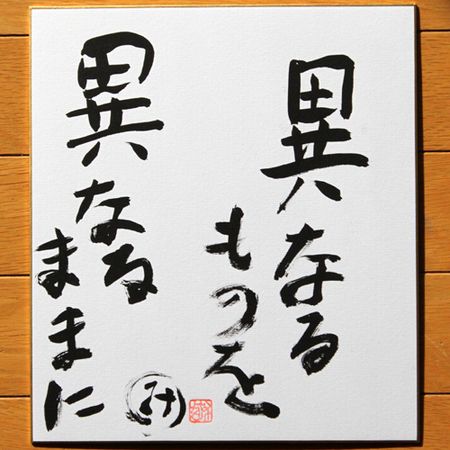 異なる
ものを
異なる
ままに